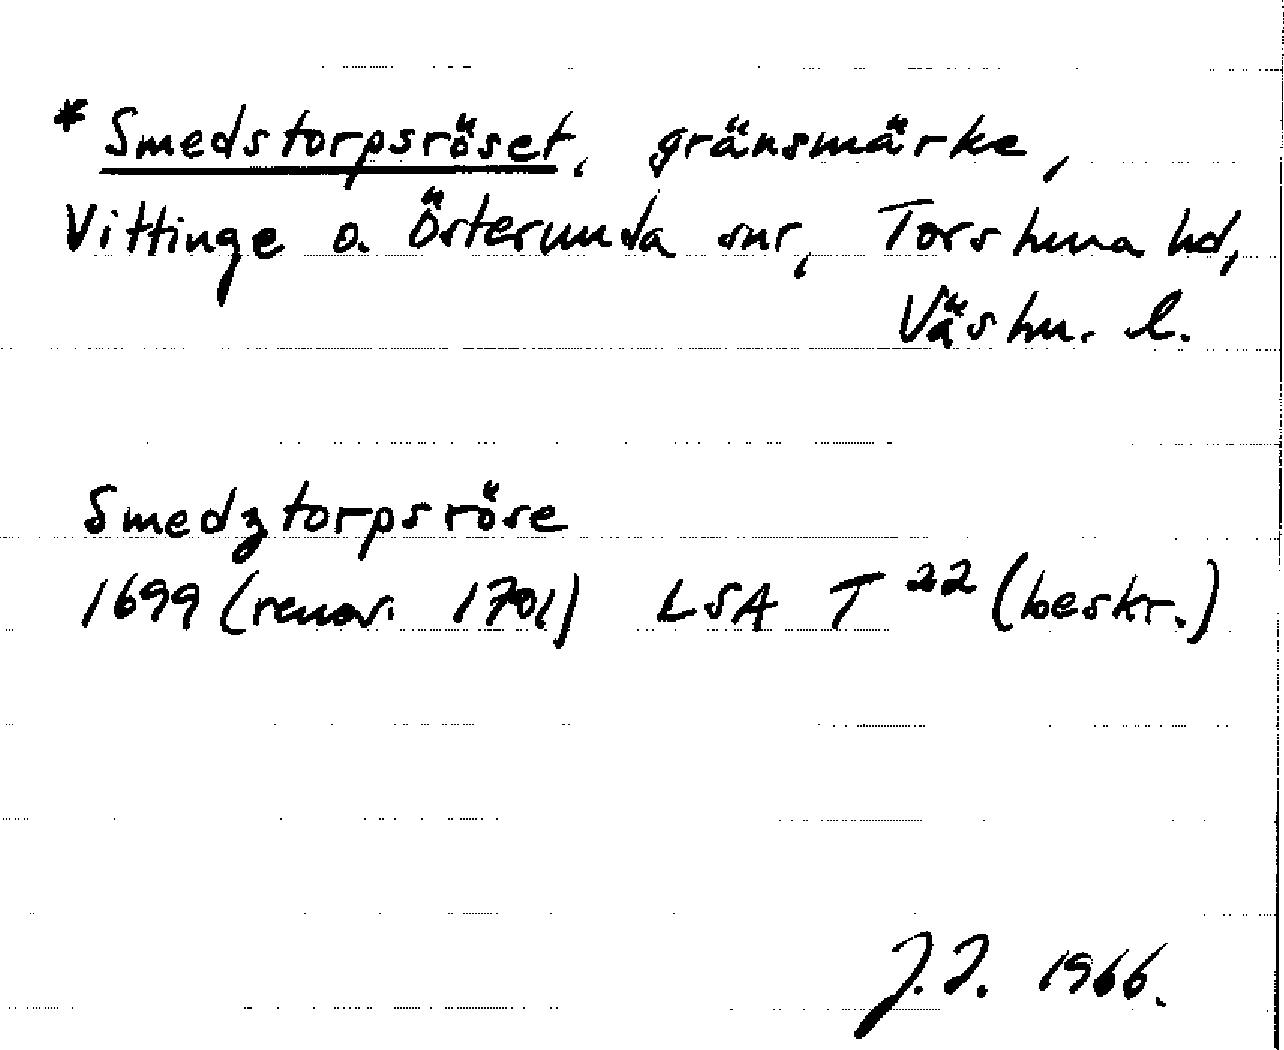 * Smedstorpsröset, gränsmärke,
Vittinge o. Österunda snr, Torstuna hd,
Västm. l.
Smedztorpsröse
1699 (renov. 1701) LSA T 22 (beskr.)
J.I. 1966.